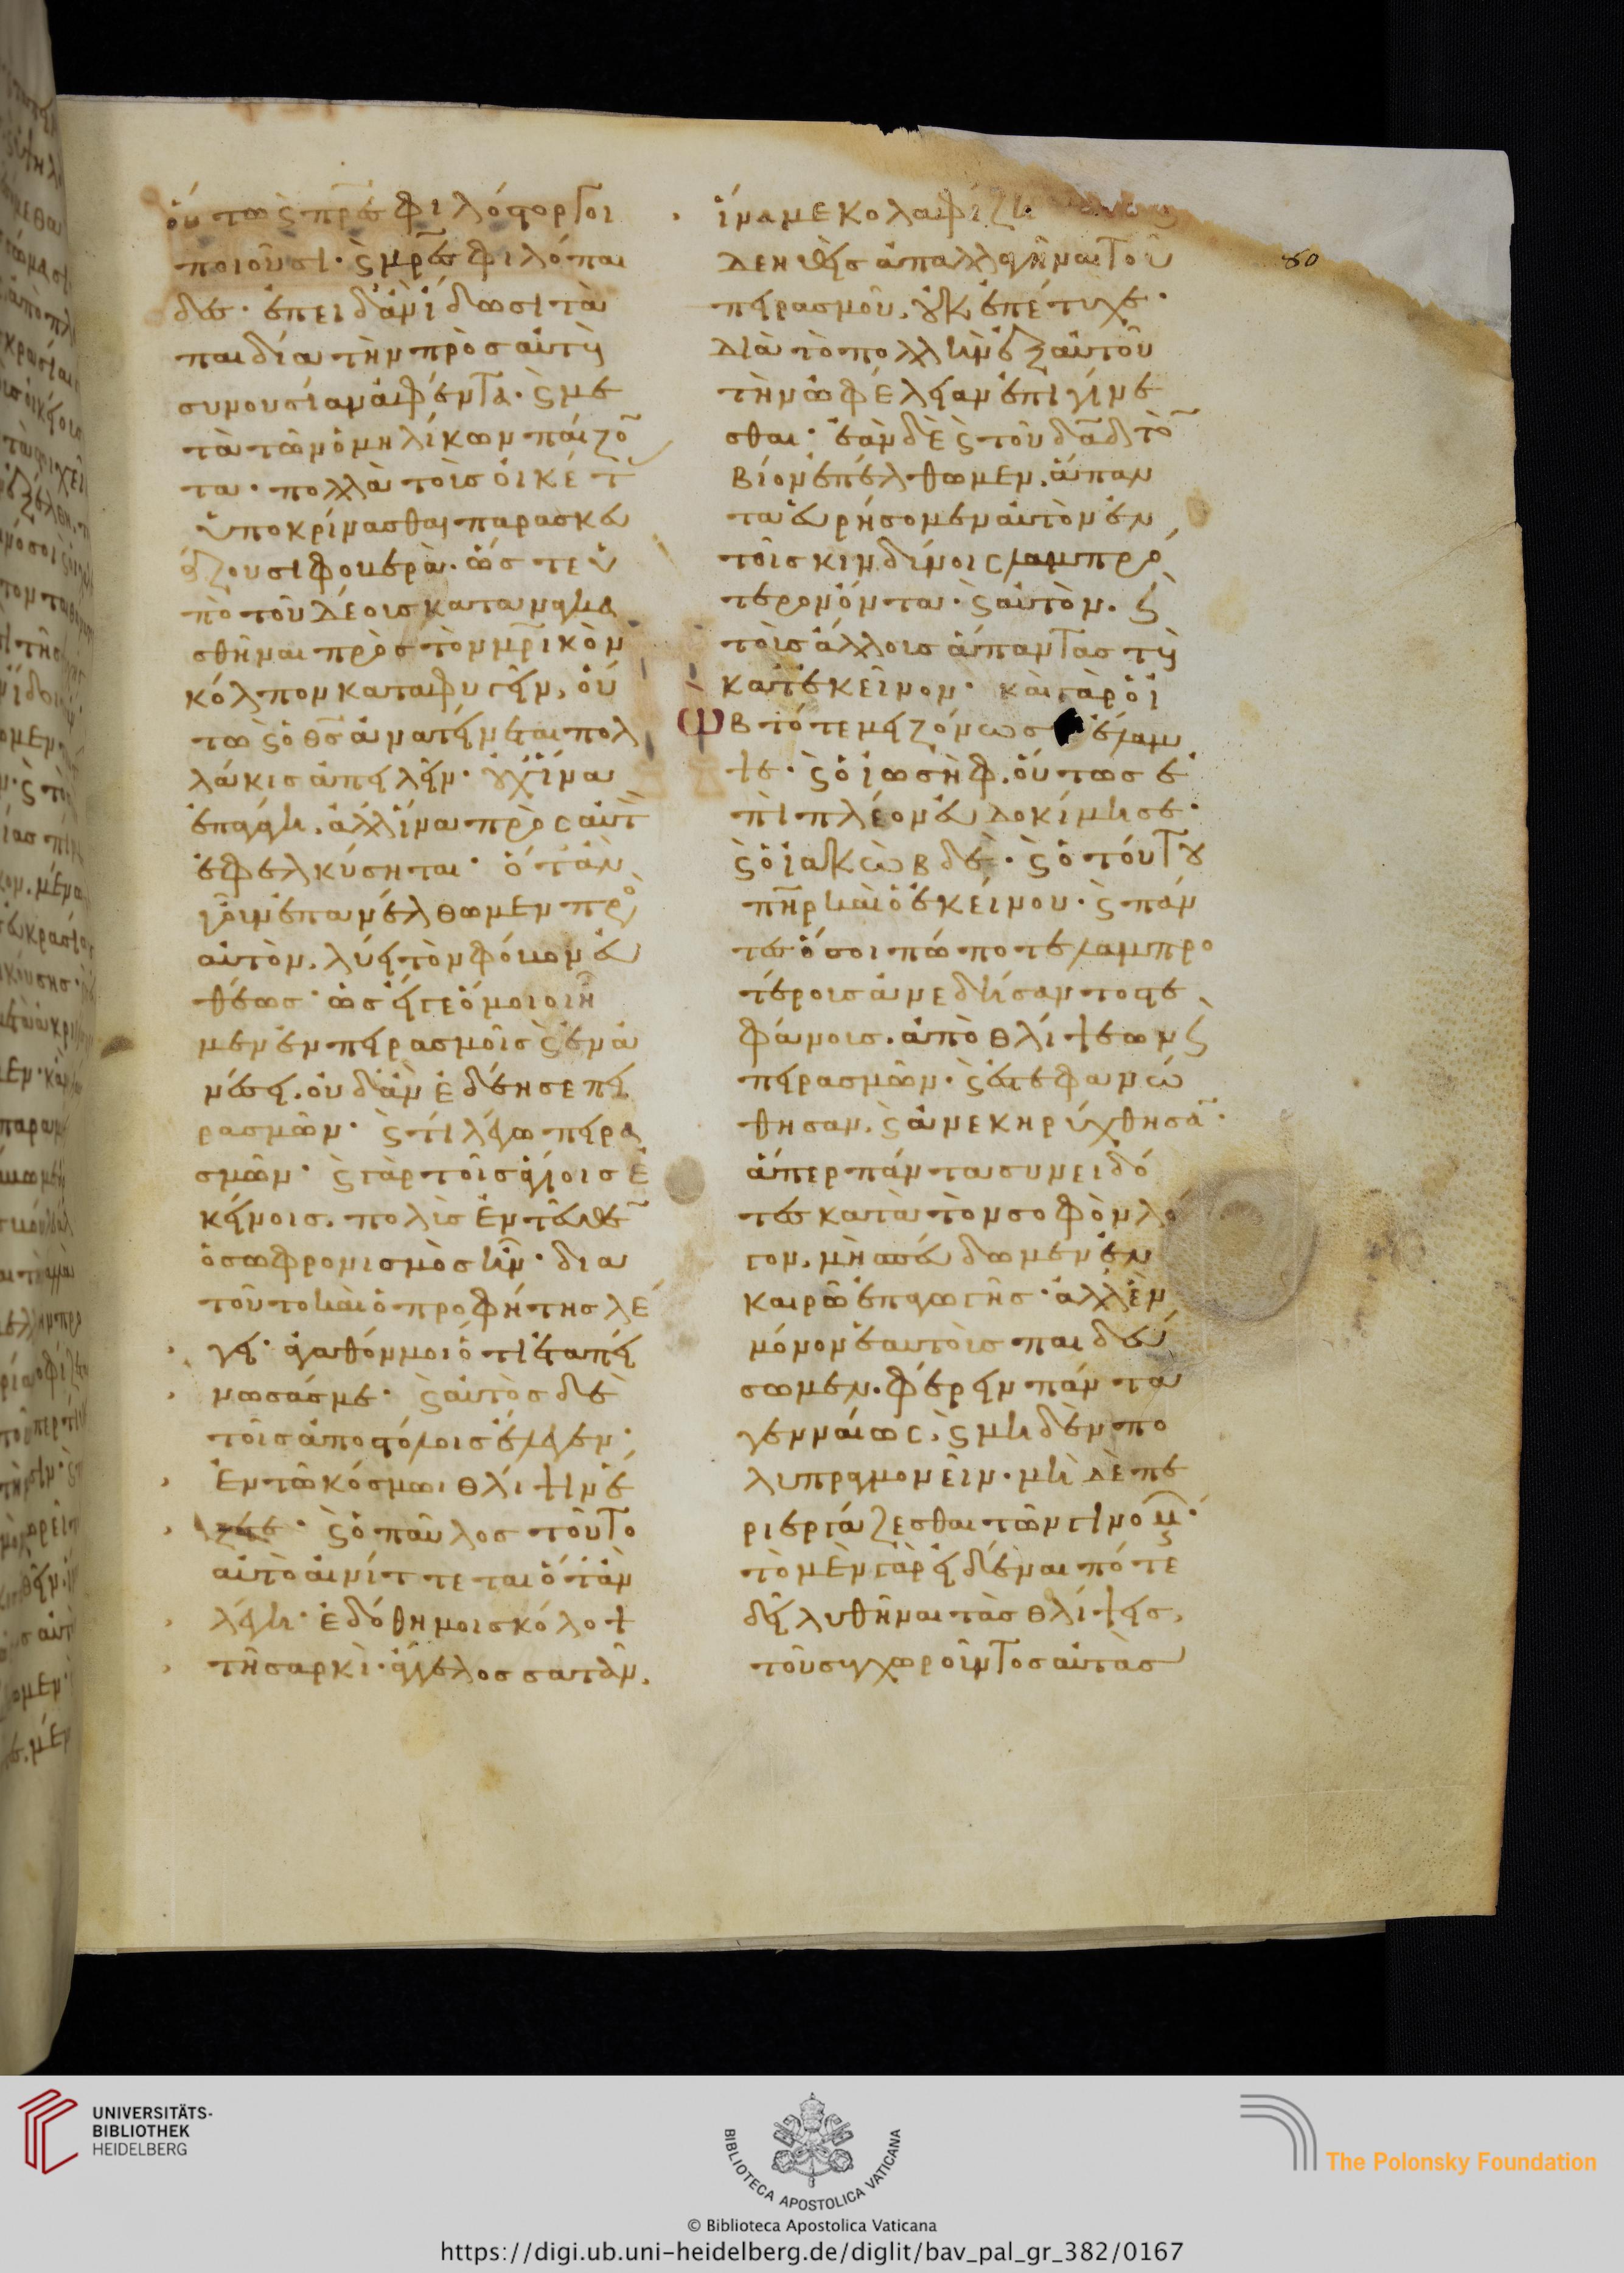 οὕτως πρς φιλόστοργοι
ποιοῦσι· ϛ μρς φιλόπαι
δες· ἐπειδὰν ἴδωσι τὰ
παιδία τὴν πρὸς αὐτὰς
συνουσίαν ἀφέντα· ϛ με
τὰ τῶν ὁμηλίκων παίζο
τα· πολλὰ τοῖς οἰκέτ
ὑποκρίνασθαι παρασκευ
άζουσι φοβερὰ· ὥστε ὑ
πὸ τοῦ δέους καταναγκα
σθῆναι πρὸς τὸν μρικὸν
κόλπον καταφυγεῖν, οὕ
τως ὁ θς ἀνατείνεται πολ
λάκις ἀπειλὴν· οὐχ ἵνα
ἐπαγάγη, ἀλλ' ἵνα πρὸς αὐτ
ἐφελκύσηται· ὅτ' ἂν
γοῦν ἐπανέλθωμεν πρὸ
αὐτὸν, λύει τὸν φόβον εὐ
θέως· ὡς εἴγε ὅμοιοι ἦ
μεν ἐν πειρασμοῖς ϛ ἐν ἀ
νέσει, οὐδ' ἂν ἐδέησε πει
ρασμῶν· ϛ τί λέγω πειρα
σμῶν· ϛ γὰρ τοῖς ἁγίοις ἐ
κείνοις, πολὺς ἐντεῦθε
ὁ σωφρονισμὸς ἦν· δια
τοῦτο καὶ ὁ προφήτης λέ
γει· ἀγαθόν μοι ὅτι ἐταπεί
νωσάς με· ϛ αὐτὸς δὲ
τοῖς ἀποστόλοις ἔλεγεν·
Ἐν τῶ κόσμωι θλίψιν ἕ
ξετε· ϛ ὁ παῦλος τοῦτο
αὐτὸ αἰνίττεται ὅτ' ἂν
λέγη· ἐδόθη μοι σκόλοψ
τῆ σαρκὶ· ἄγγελος σατὰν,
ἵνα με κολαφίζη
δεηθεὶς ἀπαλλαγῆναι τοῦ
πειρασμοῦ, οὐκ ἐπέτυχε·
διὰ τὸ πολλὴν ἐξ αὐτοῦ
τὴν ὠφέλειαν ἐπιγίνε
σθαι· ἐὰν δὲ ϛ τοῦ δαδ τὸ
βίον ἐπέλθωμεν, ἅπαν
τα εὑρήσομεν αὐτὸν ἐν
τοῖς κινδύνοις λαμπρό
τερον ὄντα· ϛ αὐτὸν, ϛ
τοὺς ἄλλους ἅπαντας τοὺς
κατ' ἐκεῖνον· καὶ γὰρ ὁ ἰ
ὼβ τότε μειζόνως ἔλαμ
ψε· ϛ ὁ ἰωσὴφ, οὕτως ἐ
πὶ πλέον εὐδοκίμησε·
ϛ ὁ ἰακὼβ δὲ· ϛ ὁ τούτου
πηρ καὶ ὁ ἐκείνου· ϛ πάν
τες ὅσοι πώποτε λαμπρο
τέροις ἀνεδήσαντο στε
φάνοις, ἀπὸ θλίψεων ϛ
πειρασμῶν· ϛ ἐστεφανώ
θησαν, ϛ ἀνεκηρύχθησα·
ἅπερ πάντα συνειδό
τες κατὰ τὸν σοφὸν λό
γον, μὴ σπεύδωμεν ἐν
καιρῶ ἐπαγωγῆς· ἀλλ' ἓν
μόνον ἑαυτοὺς παιδεύ
σωμεν, φέρειν πάντα
γενναίως, ϛ μηδὲν πο
λυπραγμονεῖν· μὴ δὲ πε
ριεργάζεσθαι τῶν γινομ·
τὸ μὲν γὰρ εἰδέναι πότε
δεῖ λυθῆναι τὰς θλίψεις,
τοῦ συγχωροῦντος αὐτὰς
80
UNIVERSITÄTS-
BIBLIOTHEK
HEIDELBERG
BIBLIOTECA APOSTOLICA VATICANA
The Polonsky Foundation
© Biblioteca Apostolica Vaticana
https://digi.ub.uni-heidelberg.de/diglit/bav_pal_gr_382/0167